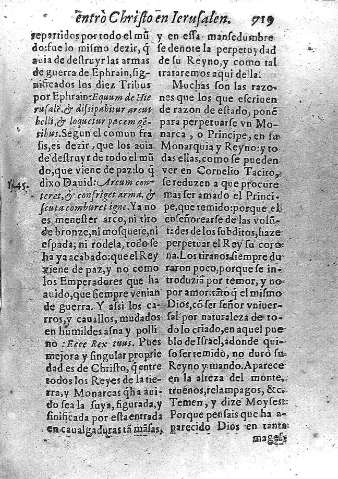 entrò Christo en Ierusalen. 719
repartidos por todo el mũ
do: fue lo mismo dezir, q̃
auia de destruyr las armas
de guerra de Ephrain, sig
nificados los diez Tribus
por Ephrain: Equum de Hie
rusalẽ, & dissipabitur arcus
belli, & loquetur pacem gẽ
tibus. Segun el comun fra
sis, es dezir, que los auia
de destruyr de todo el mũ
do, que viene de paz: lo q̃
dixo Dauid: Arcum con
teret, & confriget arma, &
scuta comburet igne. Ya no
es menester arco, ni tiro
de bronze, ni mosquete, ni
espada, ni rodela, todo se
ha ya acabado: que el Rey
viene de paz, y no como
los Emperadores que ha
auido, que siempre venian
de guerra. Y assi los car
ros, y cauallos, mudados
en humildes asna y polli
no: Ecce Rex tuus. Pues
mejora y singular proprie
dad es de Christo, q̃ entre
todos los Reyes de la tie
rra, y Monarcas q̃ ha aui
do sea la suya, figurada, y
sinificada por esta entrada
en caualgaduras tã mãsas,
y en essa mansedumbre
se denote la perpetuydad
de su Reyno, y como tal
trataremos aqui della.
Muchas son las razo
nes que los que escriuen
de razon de estado, ponẽ
para perpetuarse vn Mo
narca, o Principe, en su
Monarquia y Reyno: y to
das ellas, como se pueden
ver en Cornelio Tacito,
se reduzen a que procure
mas ser amado el Princi
pe, que temido: porque el
enseñorearse de las volũ
tades de los subditos, haze
perpetuar el Rey su coro
na. Los tiranos siempre du
raron poco, porque se in
troduziã por temor, y no
por amor. tãto q̃ el mismo
Dios, cõ ser señor vniuer
sal por naturaleza de to
do lo criado, en aquel pue
blo de Israel, adonde qui
so ser temido, no duro su
Reyno y mando. Aparece
en la alteza del monte,
truenos, relampagos, &c.
Temen, y dize Moyses:
Porque pensais que ha a
parecido Dios en tanta
mages-